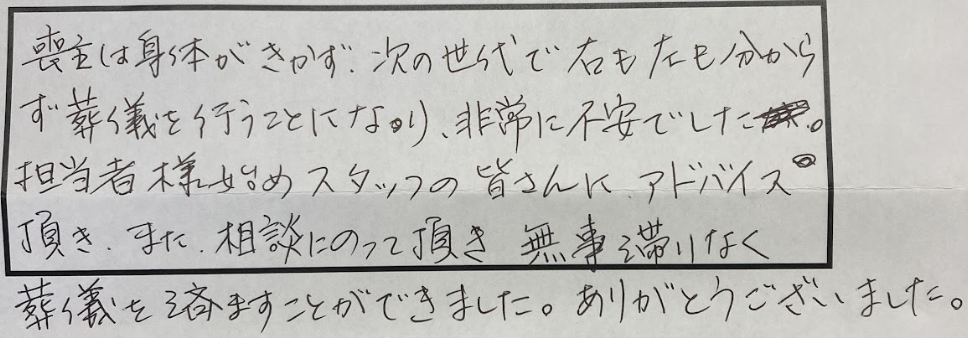 喪主は身体がきかず、次の世代で右も左も分から
ず葬儀を行うことになり、非常に不安でした。
担当者様始めスタッフの皆さんに、アドバイス
頂き、また、相談にのって頂き 無事滞りなく
葬儀を済ますことができました。ありがとうございました。